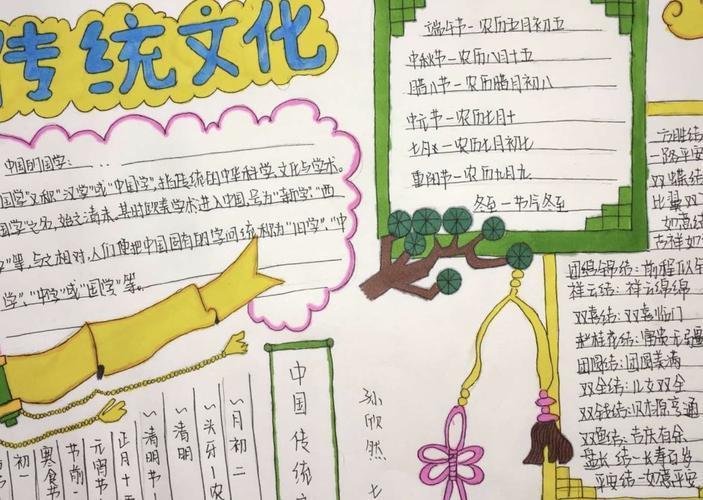 传统文化
中国的国学:
国学"又称"汉学"或"中国学",指传统的中华科学、文化与学术。
国学"之名,始于清末。其时欧美学术进入中国,号为"新学"、"西
学"等,与之相对,人们便把中国固有的学问统称为"旧学"、"中
学"、"中学"或"国学"等。
端午节—农历五月初五
中秋节—农历八月十五
腊八节—农历腊月初八
中元节—农历七月十
七月七—农历七月初七
重阳节—农历九月九
冬至—节气冬至
方胜结:
一路平安
双蝶结:
比翼双飞
如意结:
吉祥如
团锦结:前程似
祥云结:祥云绵绵
双喜结:双喜临门
团圆结:团圆美满
双全结:儿女双全
双钱结:财源亨通
双鱼结:吉庆有余
盘长结—长寿百岁
平安结—如意平安
中国传统
孙欣然
一月初二
—龙头节—农
—清明
清明节—
正月十五
元宵节
节前一
寒食节
初一